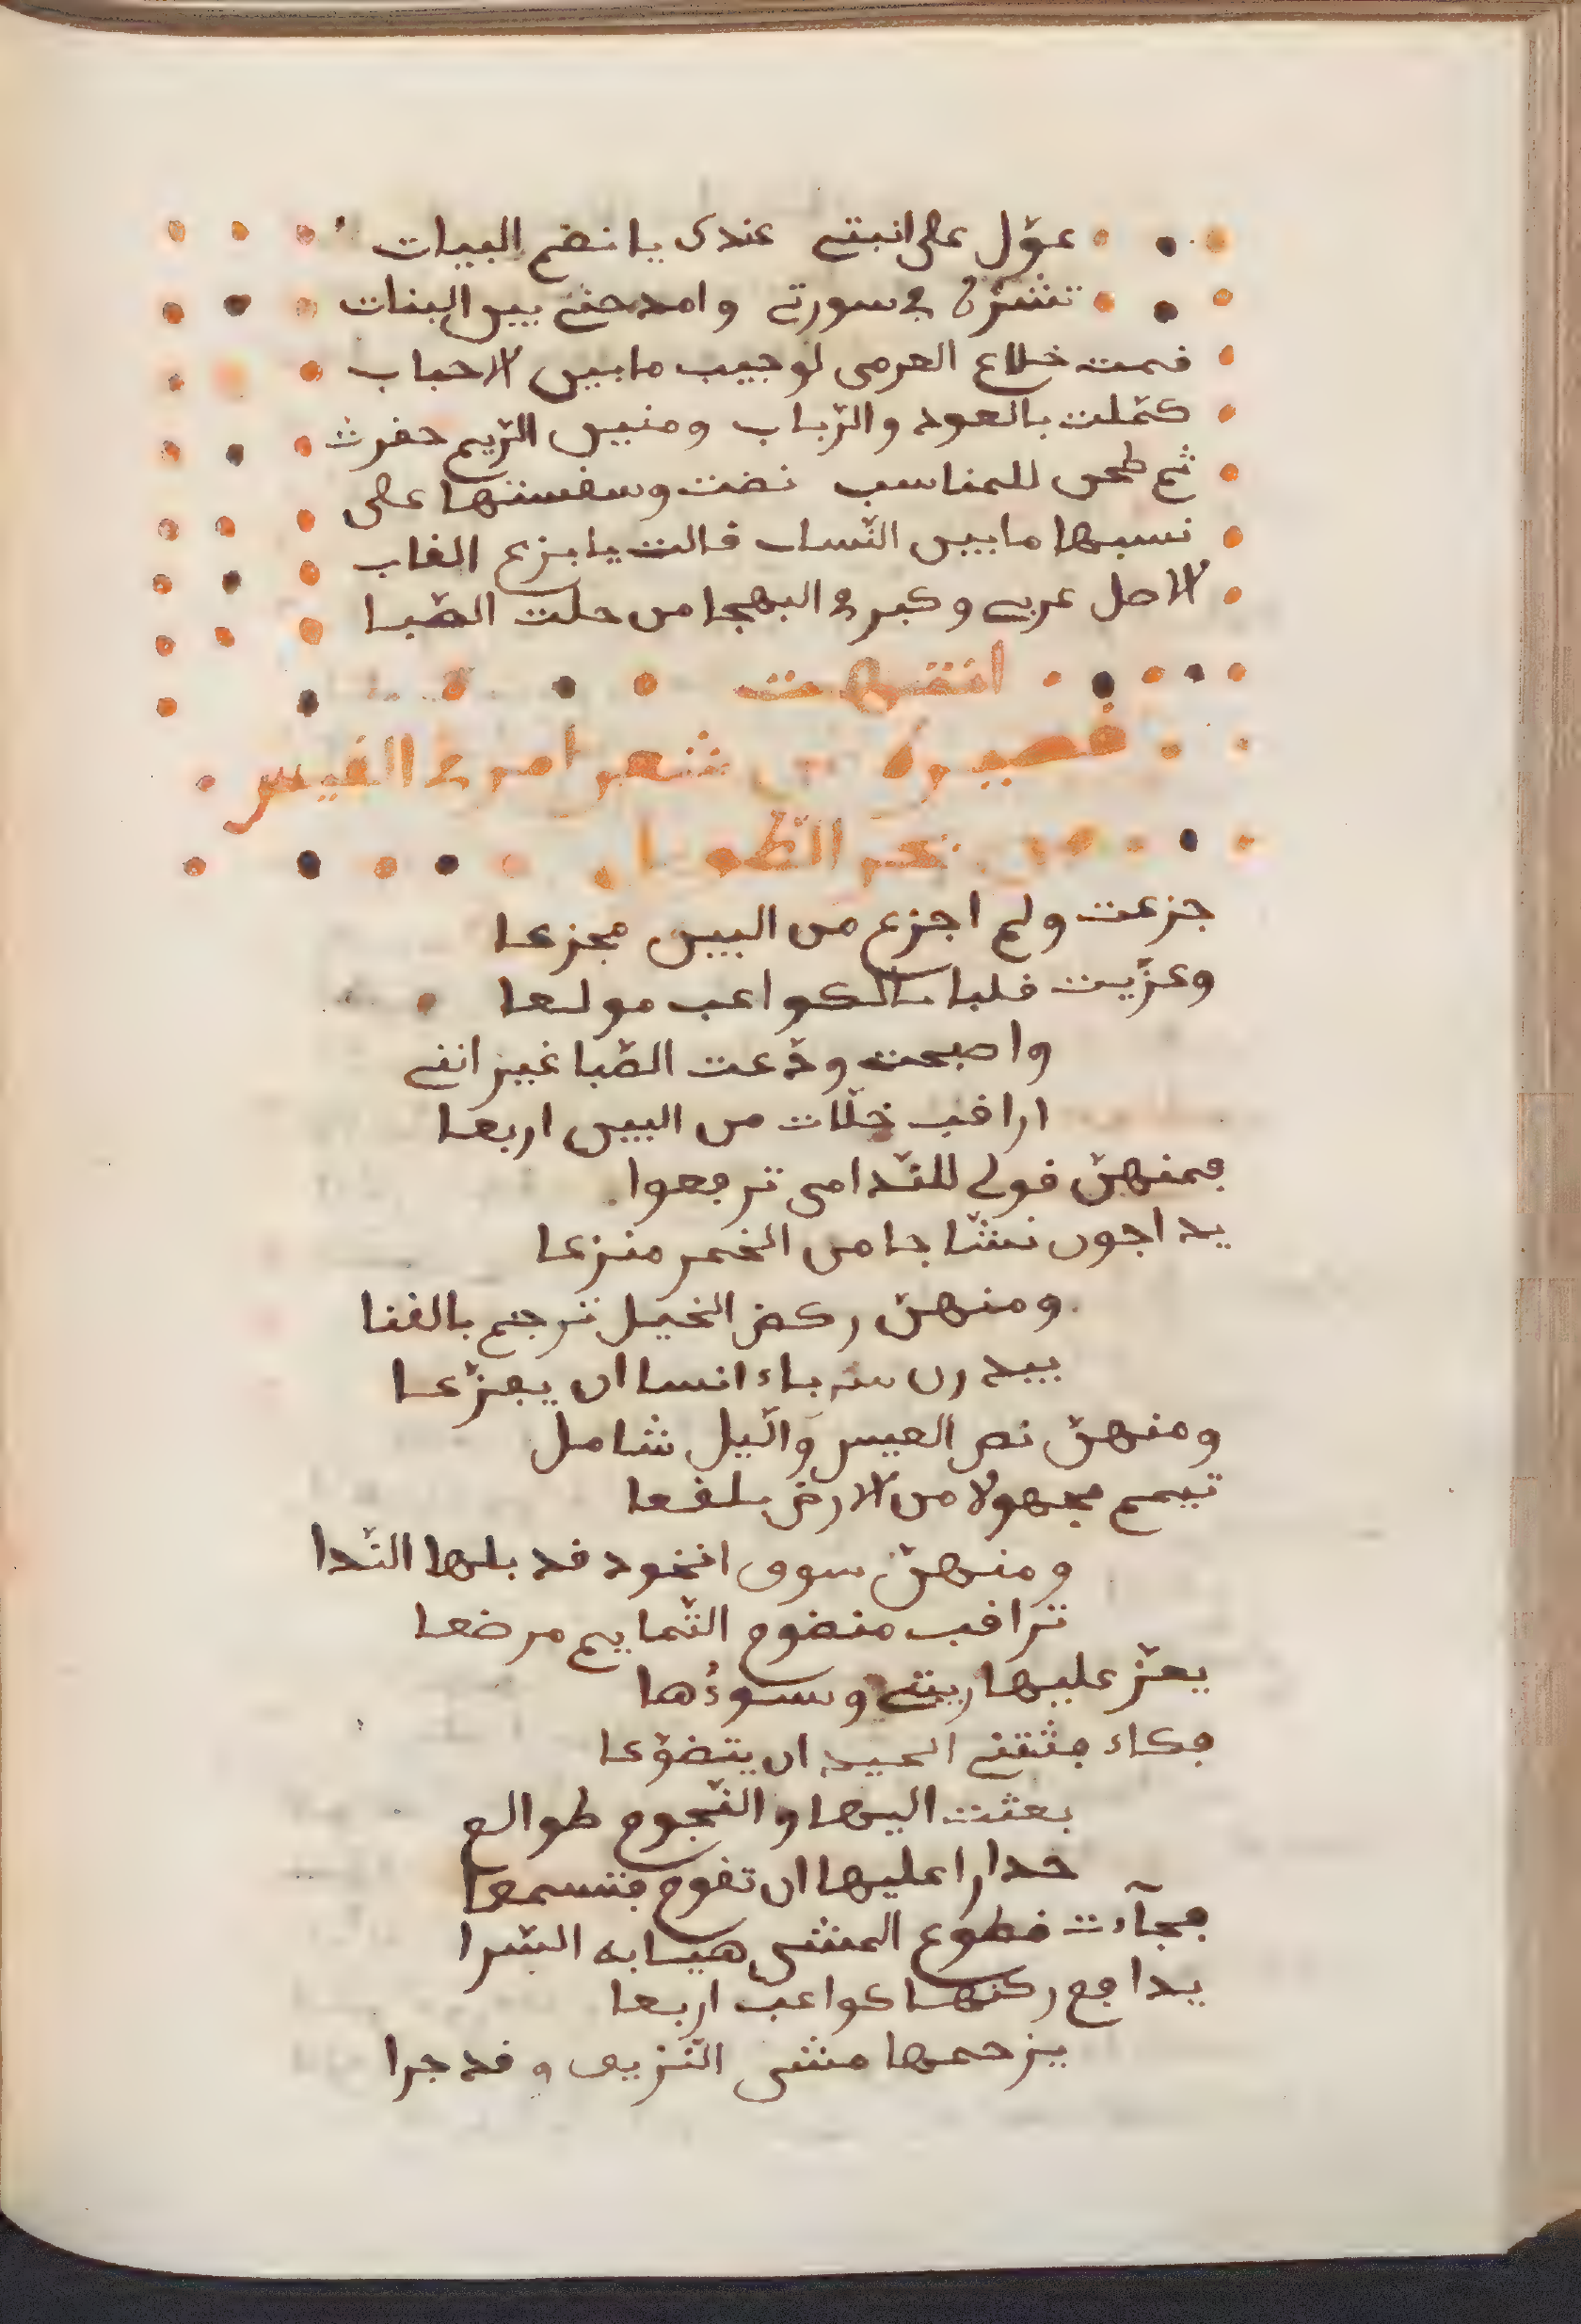 عوّل على انبتي عندي يا نضم البيات
تشنّرة في سورتي وامدحني بين البنات
قمت خلاع العرمى لوجيب مابين الاحباب
كمّلت بالعود والرّباب ومنين الرّيم حفرت
ثم طحن للمناسب نضت وسفستها على
نسبها مابين النّساب قالت يا بزع الغاب
الاصل عربي وكبر في البهجا من حلت الصّبا
انتهت
قصيدة من شعر امرئ القيس
من بحر الطّويل
جزعت ولم اجزع من البين مجزعا
وعزّيت قلبا بالكواعب مولعا
واصبحت ودّعت الصّبا غير انني
اراقب خلّات من البين اربعا
فمنهنّ قولي للنّدامى ترفعوا
يداجون نشاجا من الخمر منزعا
ومنهنّ ركض الخيل ترجم بالقنا
يبدرن سرباء انسا ان يفزّعا
ومنهنّ نص العيس والّيل شامل
تيمم مجهولا من الارض بلقعا
ومنهنّ سوف الخود قد بلها النّدا
تراقب منضوم التّمايم مرضعا
يعزّ عليها ريبتي وسوءُها
فكاء فثتني الجيد ان يتضوّعا
بعثت اليها والنّجوم طوالع
حدارا عليها ان تقوم فتسمعا
فجآءت قطوع المشي هيابه السّرا
يدافع ركنها كواعب اربعا
يزحمها مشي النّزيف وقد جرا